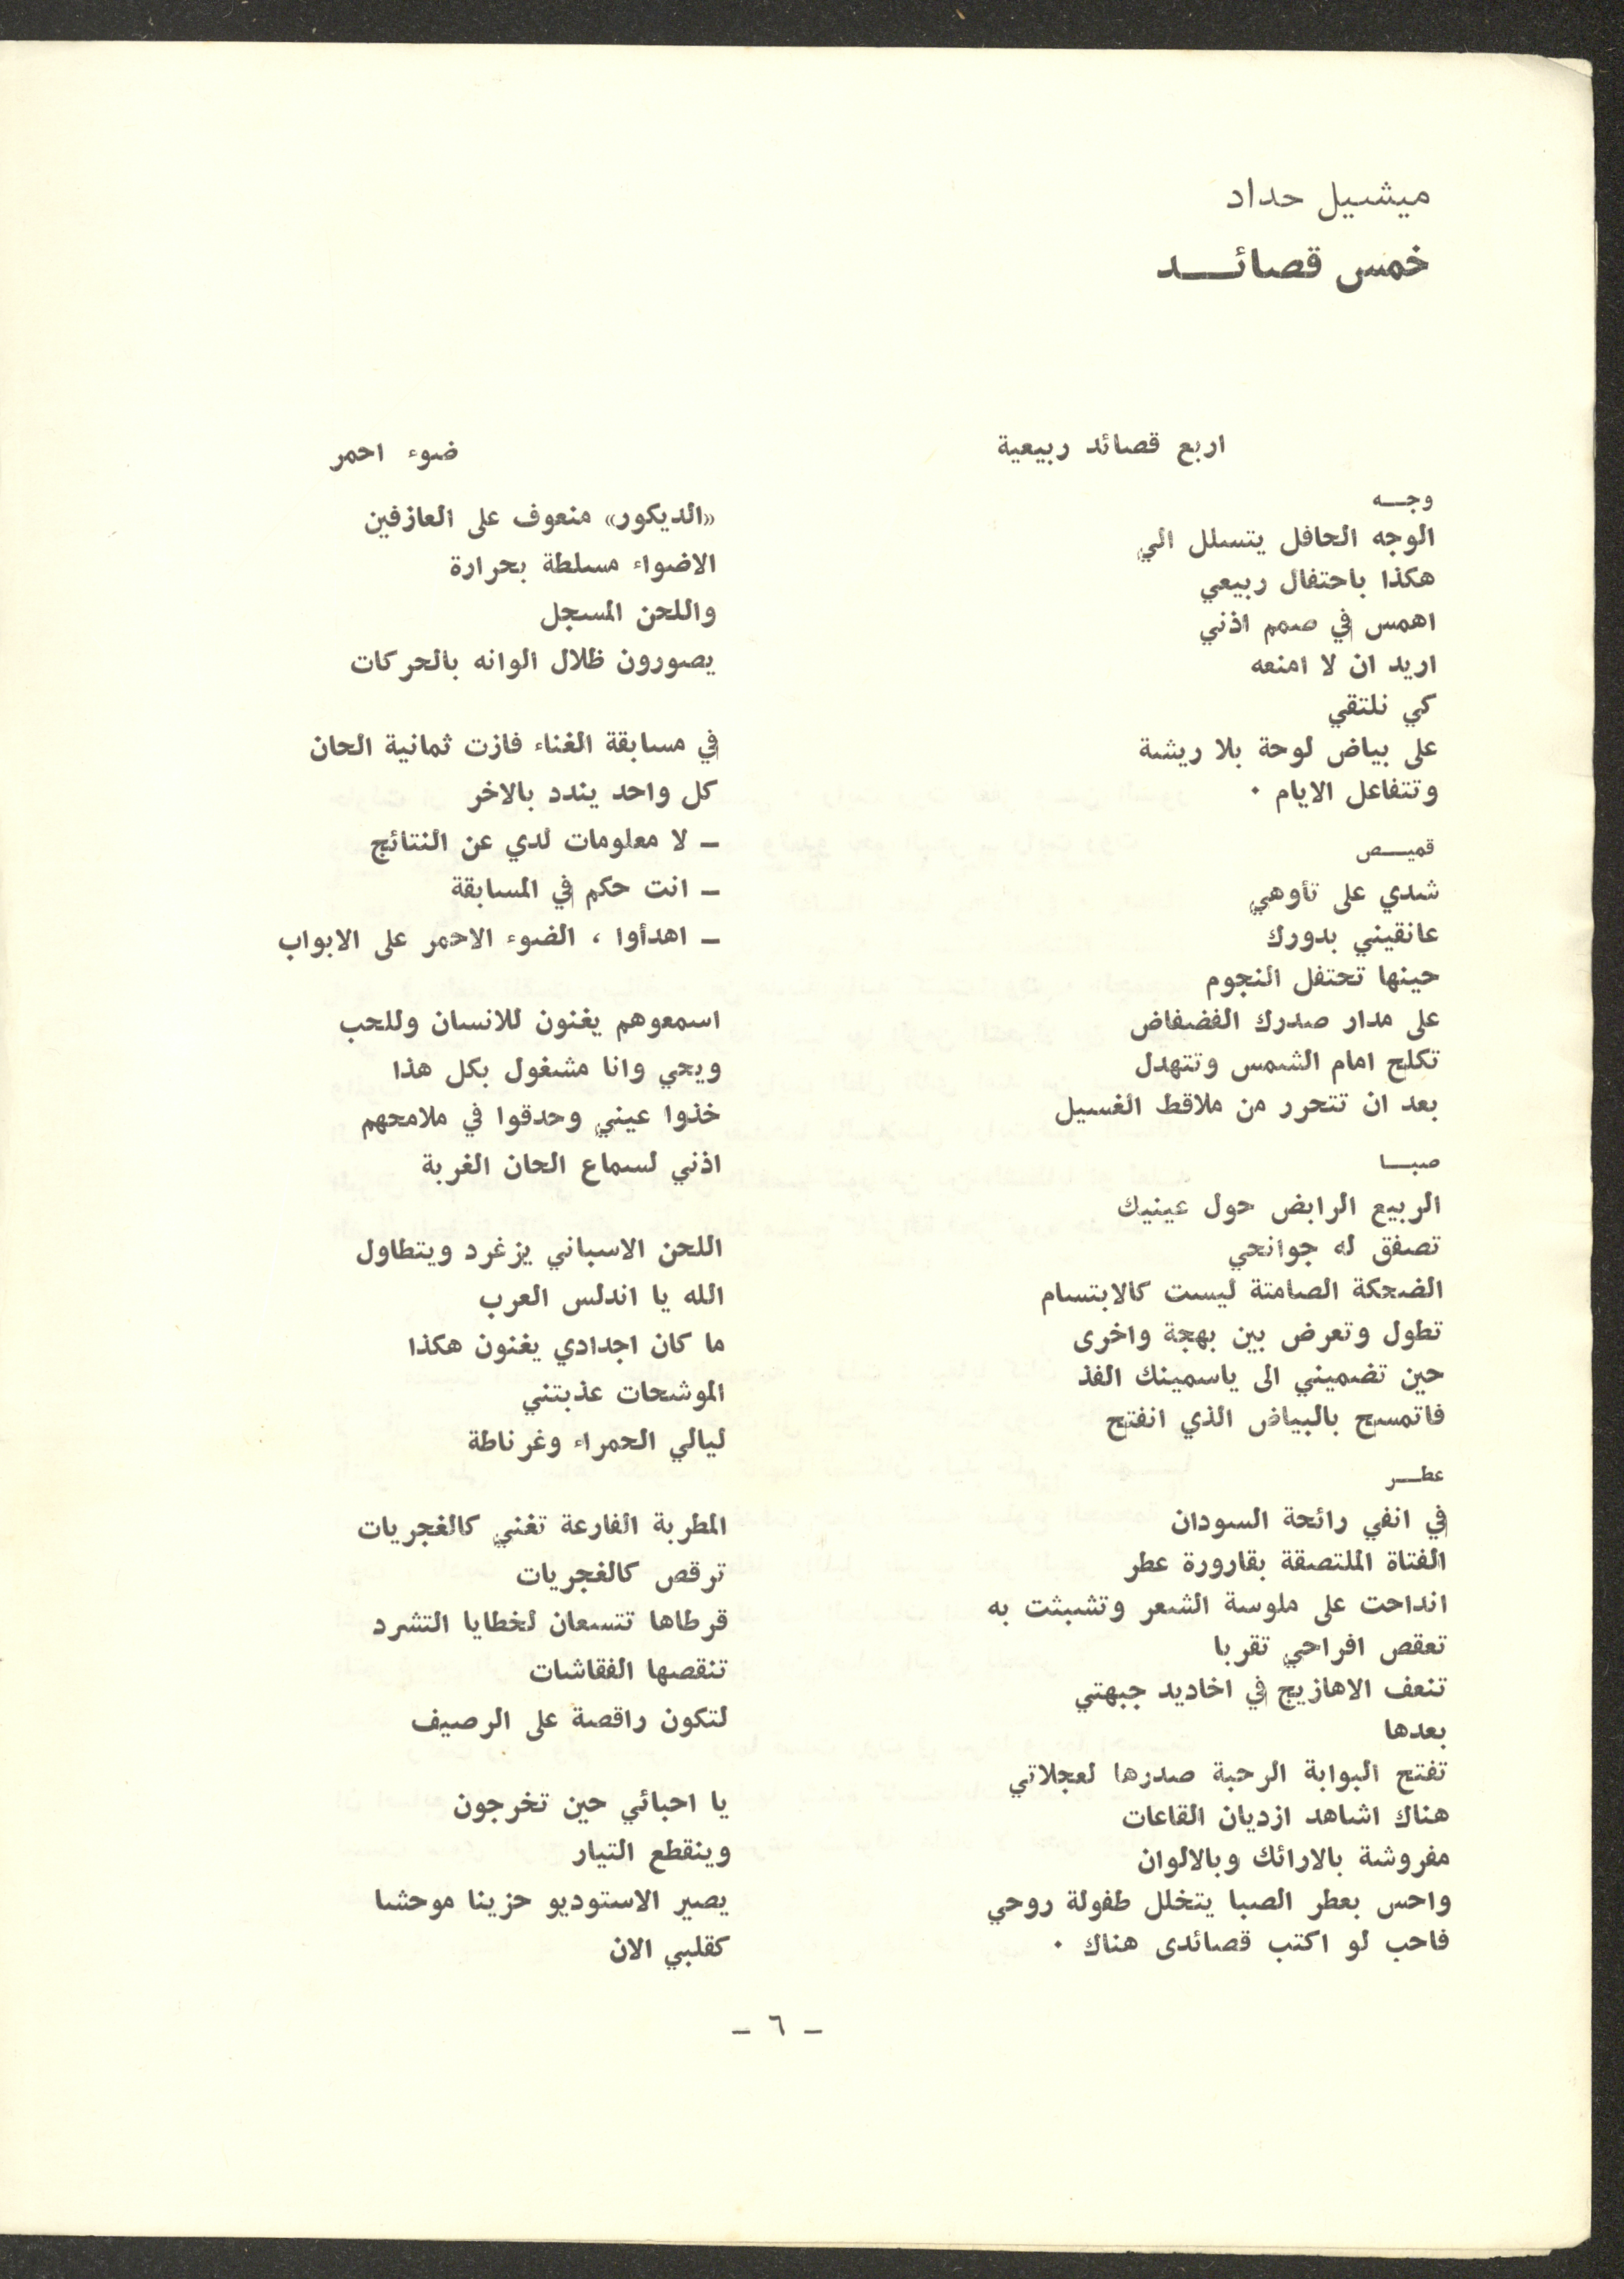 ميشيل حداد
خمس قصائــــد
اربع قصائد ربيعية
وجـــه
الوجه الحافل يتسلل الي
هكذا باحتفال ربيعي
اهمس في صمم اذني
اريد ان لا امنعه
كي نلتقي
على بياض لوحة بلا ريشة
وتتفاعل الايام ٠
قميـــص
شدي على تأوهي
عانقيني بدورك
حينها تحتفل النجوم
على مدار صدرك الفضفاض
تكلح امام الشمس وتتهدل
بعد ان تتحرر من ملاقط الغسيل
صبـــا
الربيع الرابض حول عينيك
تصفق له جوانحي
الضحكة الصامتة ليست كالابتسام
تطول وتعرض بين بهجة واخرى
حين تضميني الى ياسمينك الفذ
فاتمسح بالبياض الذي انفتح
عطـــر
في انفي رائحة السودان
الفتاة الملتصقة بقارورة عطر
انداحت على ملوسة الشعر وتشبثت به
تعقص افراحي تقربا
تنعف الاهازيج في اخاديد جبهتي
بعدها
تفتح البوابة الرحبة صدرها لعجلاتي
هناك اشاهد ازديان القاعات
مفروشة بالارائك وبالالوان
واحس بعطر الصبا يتخلل طفولة روحي
فاحب لو اكتب قصائدى هناك ٠
ضوء احمر
«الديكور» منعوف على العازفين
الاضواء مسلطة بحرارة
واللحن المسجل
يصورون ظلال الوانه بالحركات
في مسابقة الغناء فازت ثمانية الحان
كل واحد يندد بالاخر
ـ لا معلومات لدي عن النتائج
ـ انت حكم في المسابقة
ـ اهدأوا ، الضوء الاحمر على الابواب
اسمعوهم يغنون للانسان وللحب
ويحي وانا مشغول بكل هذا
خذوا عيني وحدقوا في ملامحهم
اذني لسماع الحان الغربة
اللحن الاسباني يزغرد ويتطاول
الله يا اندلس العرب
ما كان اجدادي يغنون هكذا
الموشحات عذبتني
ليالي الحمراء وغرناطة
المطربة الفارعة تغني كالغجريات
ترقص كالغجريات
قرطاها تتسعان لخطايا التشرد
تنقصها الفقاشات
لتكون راقصة على الرصيف
يا احبائي حين تخرجون
وينقطع التيار
يصير الاستوديو حزينا موحشا
كقلبي الان
ـ ٦ ـ